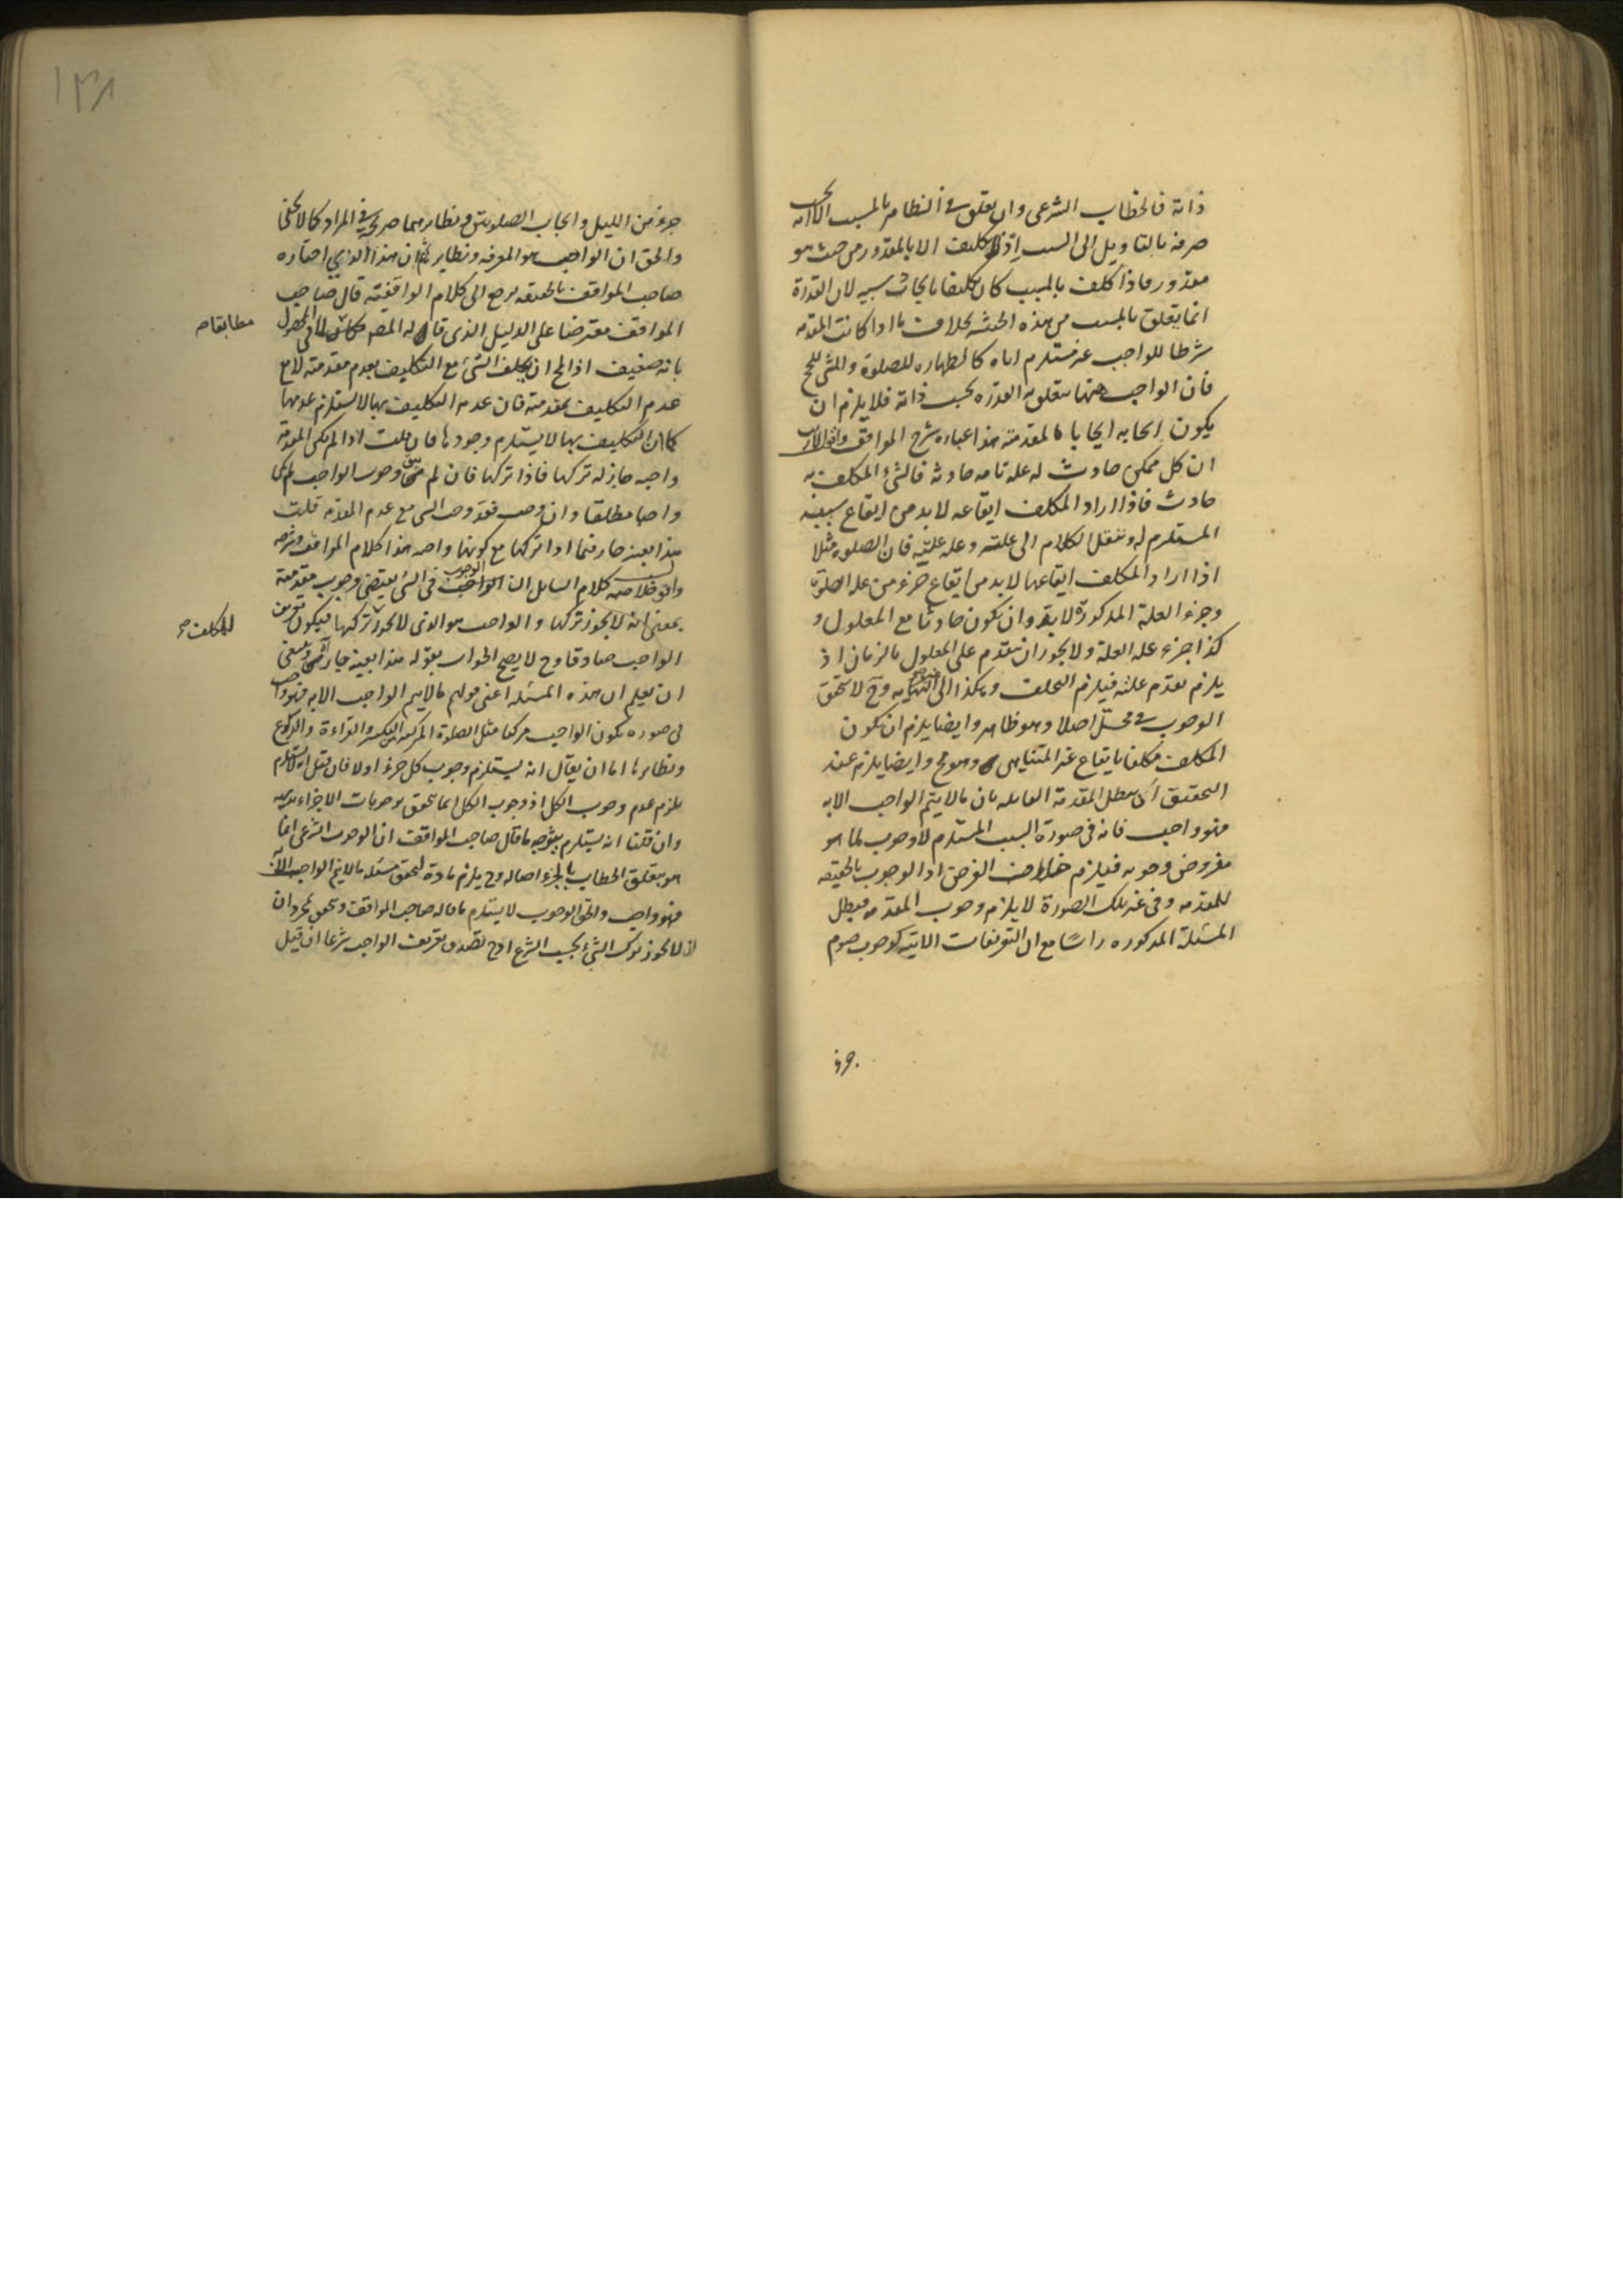 ذاته فالخطاب الشرعي وان تعلق في الظاهر بالمسبب الا انه يجب
صرفه بالتاويل الى السبب اذ لا تكليف الا بالمقدور من حيث هو
مقدور فاذا كلف بالمسبب كان تكليفا بايجاد سببه لان القدرة
انما يتعلق بالمسبب من هذه الحيثية بخلاف ما اذا كانت المقدمة
شرطا للواجب غير مستلزم اياه كالطهارة للصلوة والمشي للحج
فان الواجب ههنا يتعلق به القدرة بحسب ذاته فلا يلزم ان
يكون ايجابه ايجابا لمقدمته هذا عبارة شرح المواقف واقول
ان كل ممكن حادث له علة تامة حادثة فالشئ المكلف به
حادث فاذا اراد المكلف ايقاعه لا بد من ايقاع سببه
المستلزم له وننقل الكلام الى علته وعلة علته فان الصلوة مثلا
اذا اراد المكلف ايقاعها لا بد من ايقاع جزء من علة الصلوة
وجزء العلة المذكورة لا بد وان تكون حادثا مع المعلول و
كذا جزء علة العلة ولا يجوز ان يتقدم على المعلول بالزمان اذ
يلزم تقدم علته فيلزم التخلف وهكذا الى غير النهاية وح لا يتحقق
الوجوب في محل اصلا وهو ظاهر وايضا يلزم ان يكون
المكلف مكلفا بايقاع غير المتناهي وهو مح وايضا يلزم عند
التحقيق ان يبطل المقدمة القايلة بان ما لا يتم الواجب الا به
فهو واجب فانه في صورة السبب المستلزم لا وجوب لما هو
مفروض وجوبه فيلزم خلاف الفرض اذ الوجوب بالحقيقة
للمقدمة وفي غير تلك الصورة لا يلزم وجوب المقدمة فيبطل
المسئلة المذكورة راسا مع ان التعريفات الاتية كوجوب صوم
جزء
١٣٨
جزء من الليل وايجاب الصلوتين ونظايرهما صريحة في المراد كما لا يخفى
والحق ان الواجب هو المعرفة ونظايرها ثم ان هذا الذي اختاره
صاحب المواقف بالحقيقة يرجع الى كلام الواقفية قال صاحب
المواقف معترضا على الدليل الذي قال له المص
مطابقا م
بانه ضعيف اذ المح ان يكلف الشئ مع التكليف بعدم مقدمته لا مع
عدم التكليف بمقدمته فان عدم التكليف بها لا يستلزم عدمها
كما ان التكليف بها لا يستلزم وجودها فان قلت اذا لم تكن المقدمة
واجبة جاز له تركها فاذا تركها فان لم يبق وجوب الواجب لم يكن
واجبا مطلقا وان وجب فقد وجب الشئ مع عدم المقدمة قلت
هذا بعينه جار فيما اذا تركها مع كونها واجبة هذا كلام المواقف وشرحه
واقول خلاصة كلام السايل ان الوجوب في الشئ يقتضي وجوب مقدمته
بمعنى انه لا يجوز تركها والواجب هو الذي لا يجوز تركها فيكون تعريف
للمكلف صح
الواجب صادقا وح لا يصح الجواب بقوله هذا بعينه جار وينبغي
ان يعلم ان هذه المسئلة اعني قولهم ما لا يتم الواجب الا به فهو واجب
في صورة يكون الواجب مركبا مثل الصلوة المركبة من التكبير والقراءة والركوع
ونظايرها اما ان يقال انه يستلزم وجوب كل جزء او لا فان قيل لا يستلزم
يلزم عدم وجوب الكل اذ وجوب الكل انما يتحقق بوجوبات الاجزاء
وان قلنا انه يستلزم يتوجه ما قال صاحب المواقف ان الوجوب الشرعي انما
هو بتعلق الخطاب بالجزء اصالة وح يلزم مادة لتحقق مسئلة ما لا يتم الواجب الا به
فهو واجب والحق الوجوب لا يستلزم ما قاله صاحب المواقف وتحقق بمجرد ان
لا يجوز ترك الشئ بحسب الشرع اذ ح يصدق تعريف الواجب شرعا ان قيل